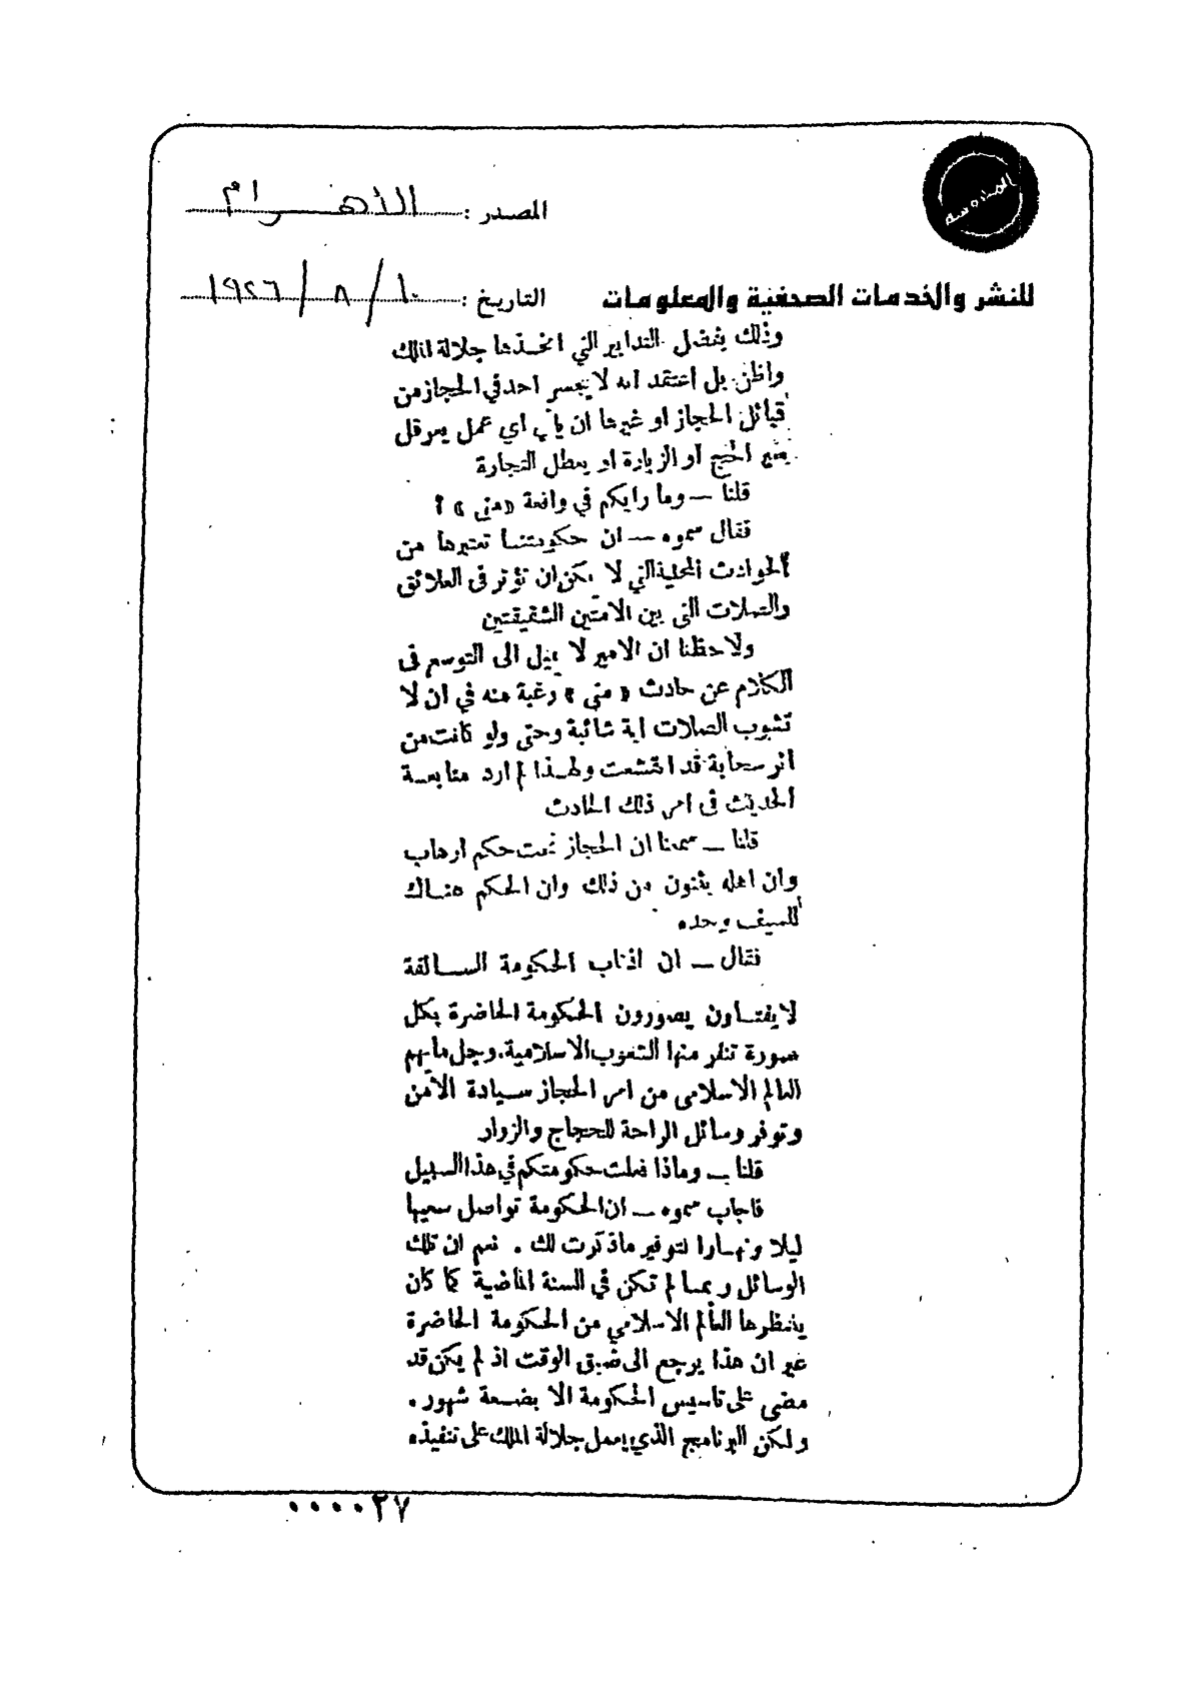 المصدر : الأهرام
للنشر والخدمات الصحفية والمعلومات
التاريخ : ١٠ / ٨ / ١٩٢٦
وذلك بفضل التدابير التي اتخذها جلالة الملك
واظن بل اعتقد انه لا يجسر احد في الحجاز من
قبائل الحجاز او غيرها ان يأتي اي عمل يعرقل
سير الحج او الزيارة او يعطل التجارة
قلنا — وما رايكم في واقعة « منى » ؟
فقال سموه — ان حكومتنا تعتبرها من
الحوادث المحلية التي لا يمكن ان تؤثر في العلائق
والصلات التي بين الامتين الشقيقتين
ولاحظنا ان الامير لا يميل الى التوسع في
الكلام عن حادث « منى » رغبة منه في ان لا
تشوب الصلات اية شائبة وحتى ولو كانت من
اثر سحابة قد انقشعت ولهذا لم ارد متابعة
الحديث في امر ذلك الحادث
قلنا — سمعنا ان الحجاز تحت حكم ارهاب
وان اهله يئنون من ذلك وان الحكم هناك
للسيف وحده
فقال — ان اذناب الحكومة السالفة
لا يفتأون يصورون الحكومة الحاضرة بكل
صورة تنفر منها الشعوب الاسلامية . وجل ما يهم
العالم الاسلامي من امر الحجاز سيادة الأمن
وتوفر وسائل الراحة للحجاج والزوار
قلنا — وماذا فعلت حكومتكم في هذا السبيل
فاجاب سموه — ان الحكومة تواصل سعيها
ليلا ونهارا لتوفير ما ذكرت لك . نعم ان تلك
الوسائل ربما لم تكن في السنة الماضية كما كان
ينتظرها العالم الاسلامي من الحكومة الحاضرة
غير ان هذا يرجع الى ضيق الوقت اذ لم يكن قد
مضى على تاسيس الحكومة الا بضعة شهور .
ولكن البرنامج الذي يعمل جلالة الملك على تنفيذه
٠٠٠٠٢٧